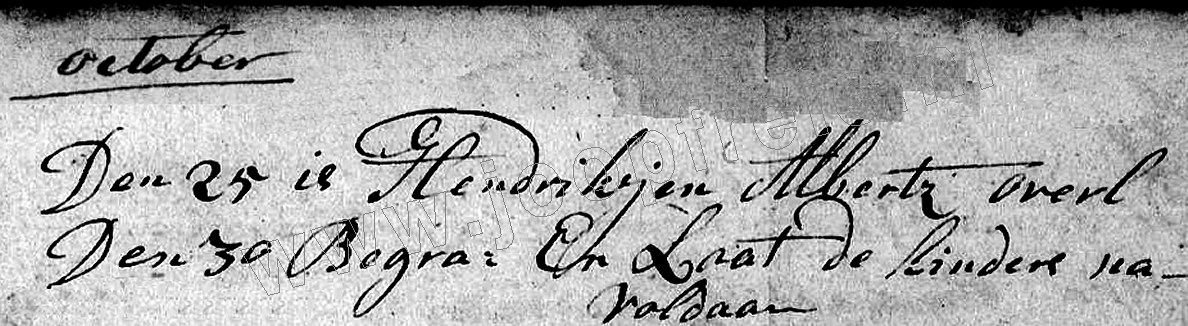 october
Den 25 is Hendrikjen Albertz overl
Den 30 Begra: En Laat de kinders na_
voldaan